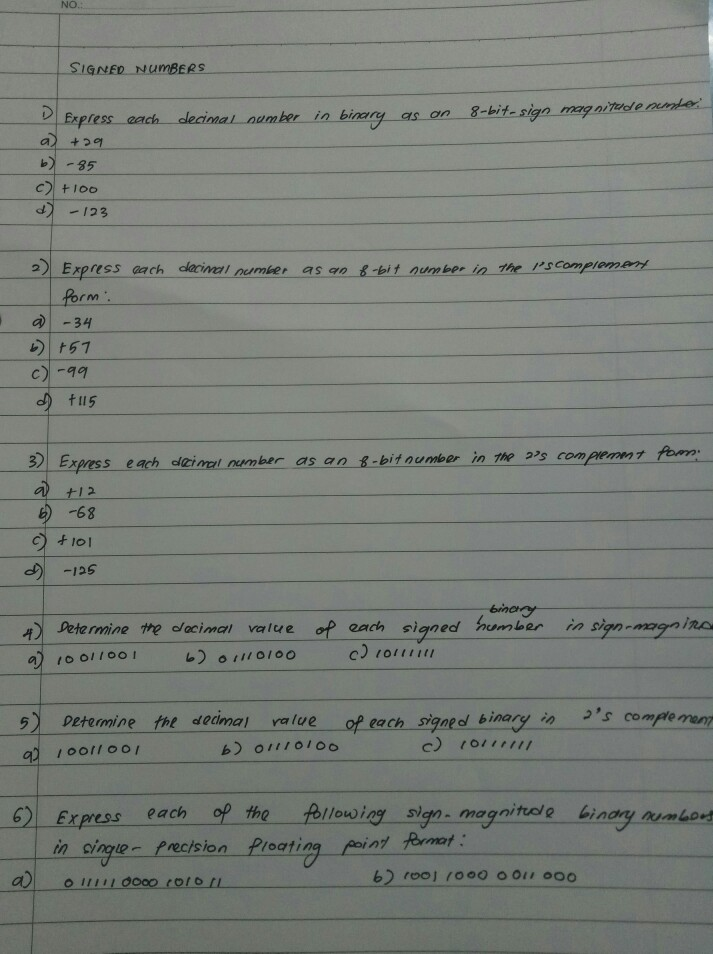 NO.:
SIGNED NUMBERS
1) Express each decimal number in binary as an 8-bit-sign magnitude number:
a) +29
b) -85
c) +100
d) -123
2) Express each decimal number as an 8-bit number in the 1's complement
form:
a) -34
b) +57
c) -99
d) +115
3) Express each decimal number as an 8-bit number in the 2's complement form:
a) +12
b) -68
c) +101
d) -125
binary
4) Determine the decimal value of each signed number in sign-magnitud
a) 10011001 b) 01110100 c) 10111111
5) Determine the decimal value of each signed binary in 2's complement
a) 10011001 b) 01110100 c) 10111111
6) Express each of the following sign-magnitude binary numbers
in single-precision floating point format:
a) 0111110000101011 b) 100110000011000